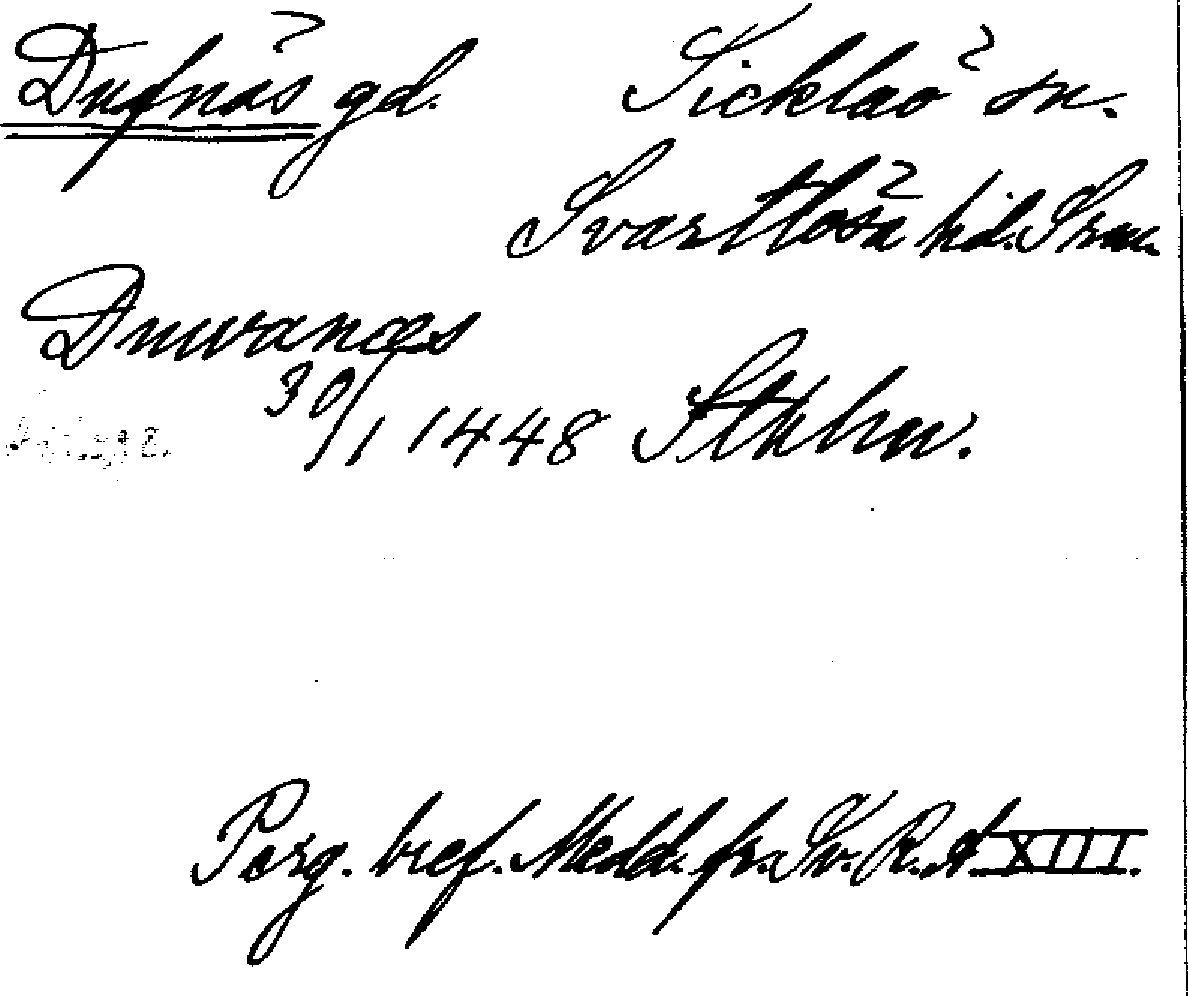 Dufnäs gd. Sicklaö sn.
Svartlösa hd. Srm.
Duuranæs
30/1 1448 Sthlm.
Perg. bref. Medd. fr. Sv. R. A. XIII.